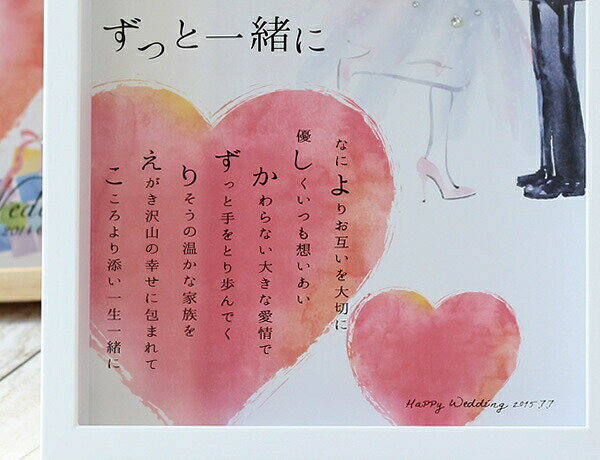 ずっと一緒に
なによりお互いを大切に
優しくいつも想いあい
かわらない大きな愛情で
ずっと手をとり歩んでく
りそうの温かな家族を
えがき沢山の幸せに包まれて
こころより添い一生一緒に
Happy Wedding 2015 7.7